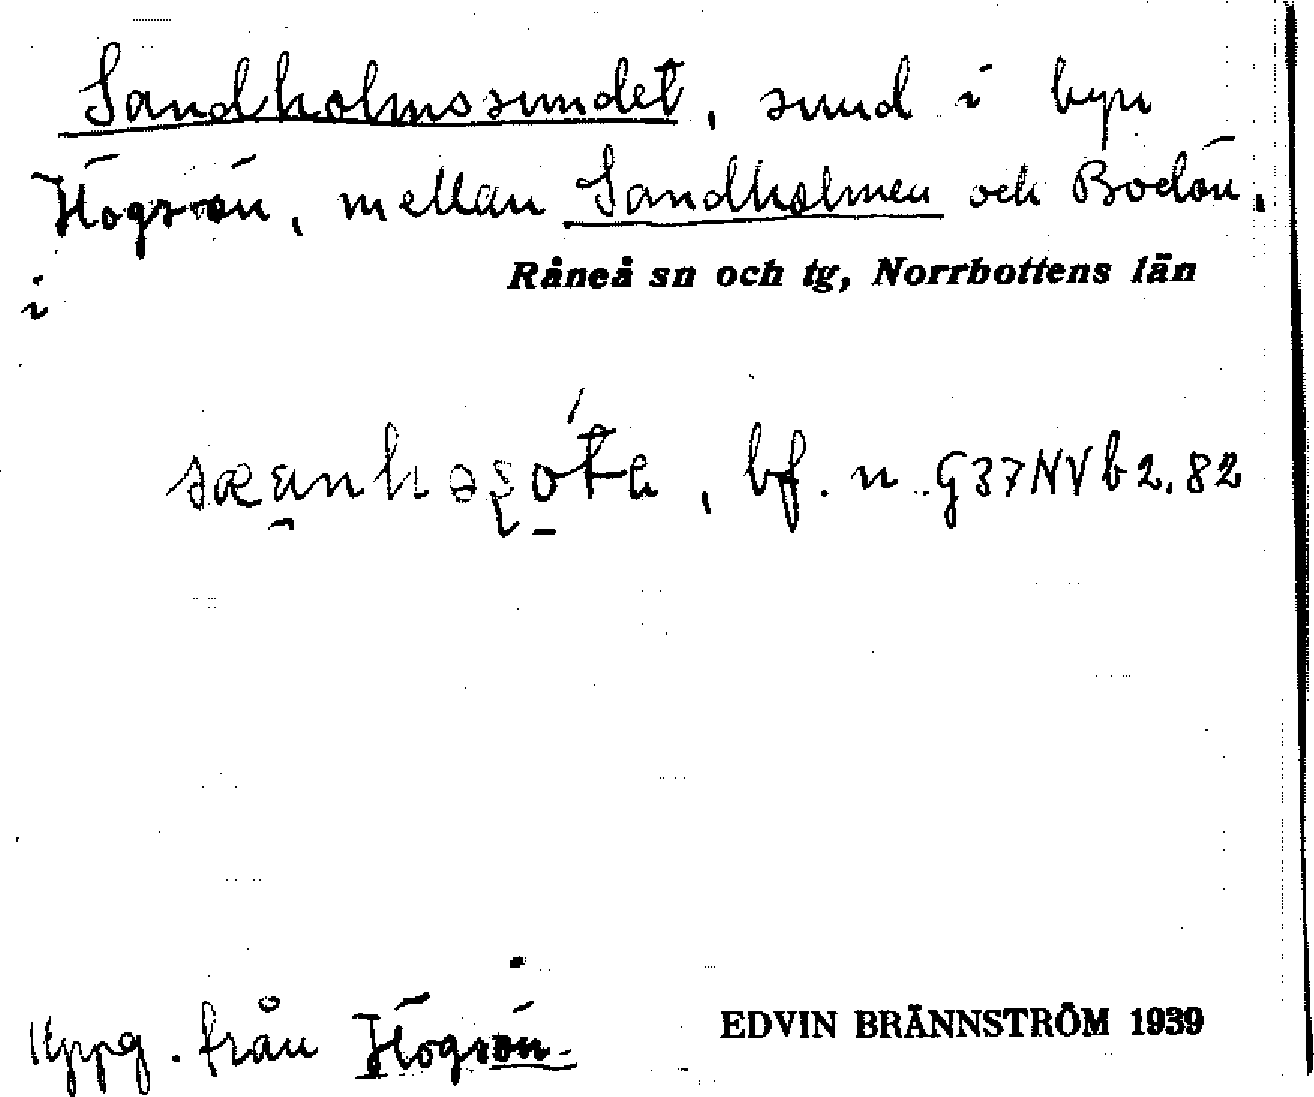 Sandholmssundet, sund i byn
Högsön, mellan Sandholmen och Bodön,
i Råneå sn och tg, Norrbottens län
bf. n. G37NVb2.82
Uppg. från Högsön. EDVIN BRÄNNSTRÖM 1939